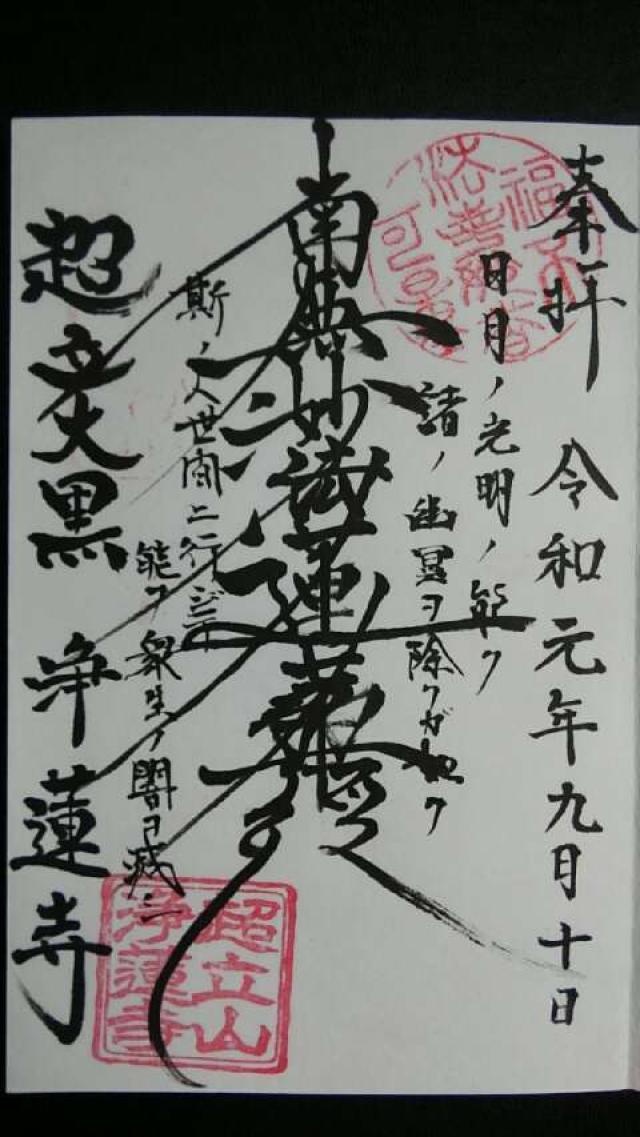 奉拝 令和元年九月十日
日月ノ光明ノ能ク
諸ノ幽冥ヲ除クガ如ク
南無妙法蓮華経
斯ノ人世間ニ行ジテ
能ク衆生ノ闇ヲ滅ス
超立大黒 浄蓮寺
超立山
浄蓮寺